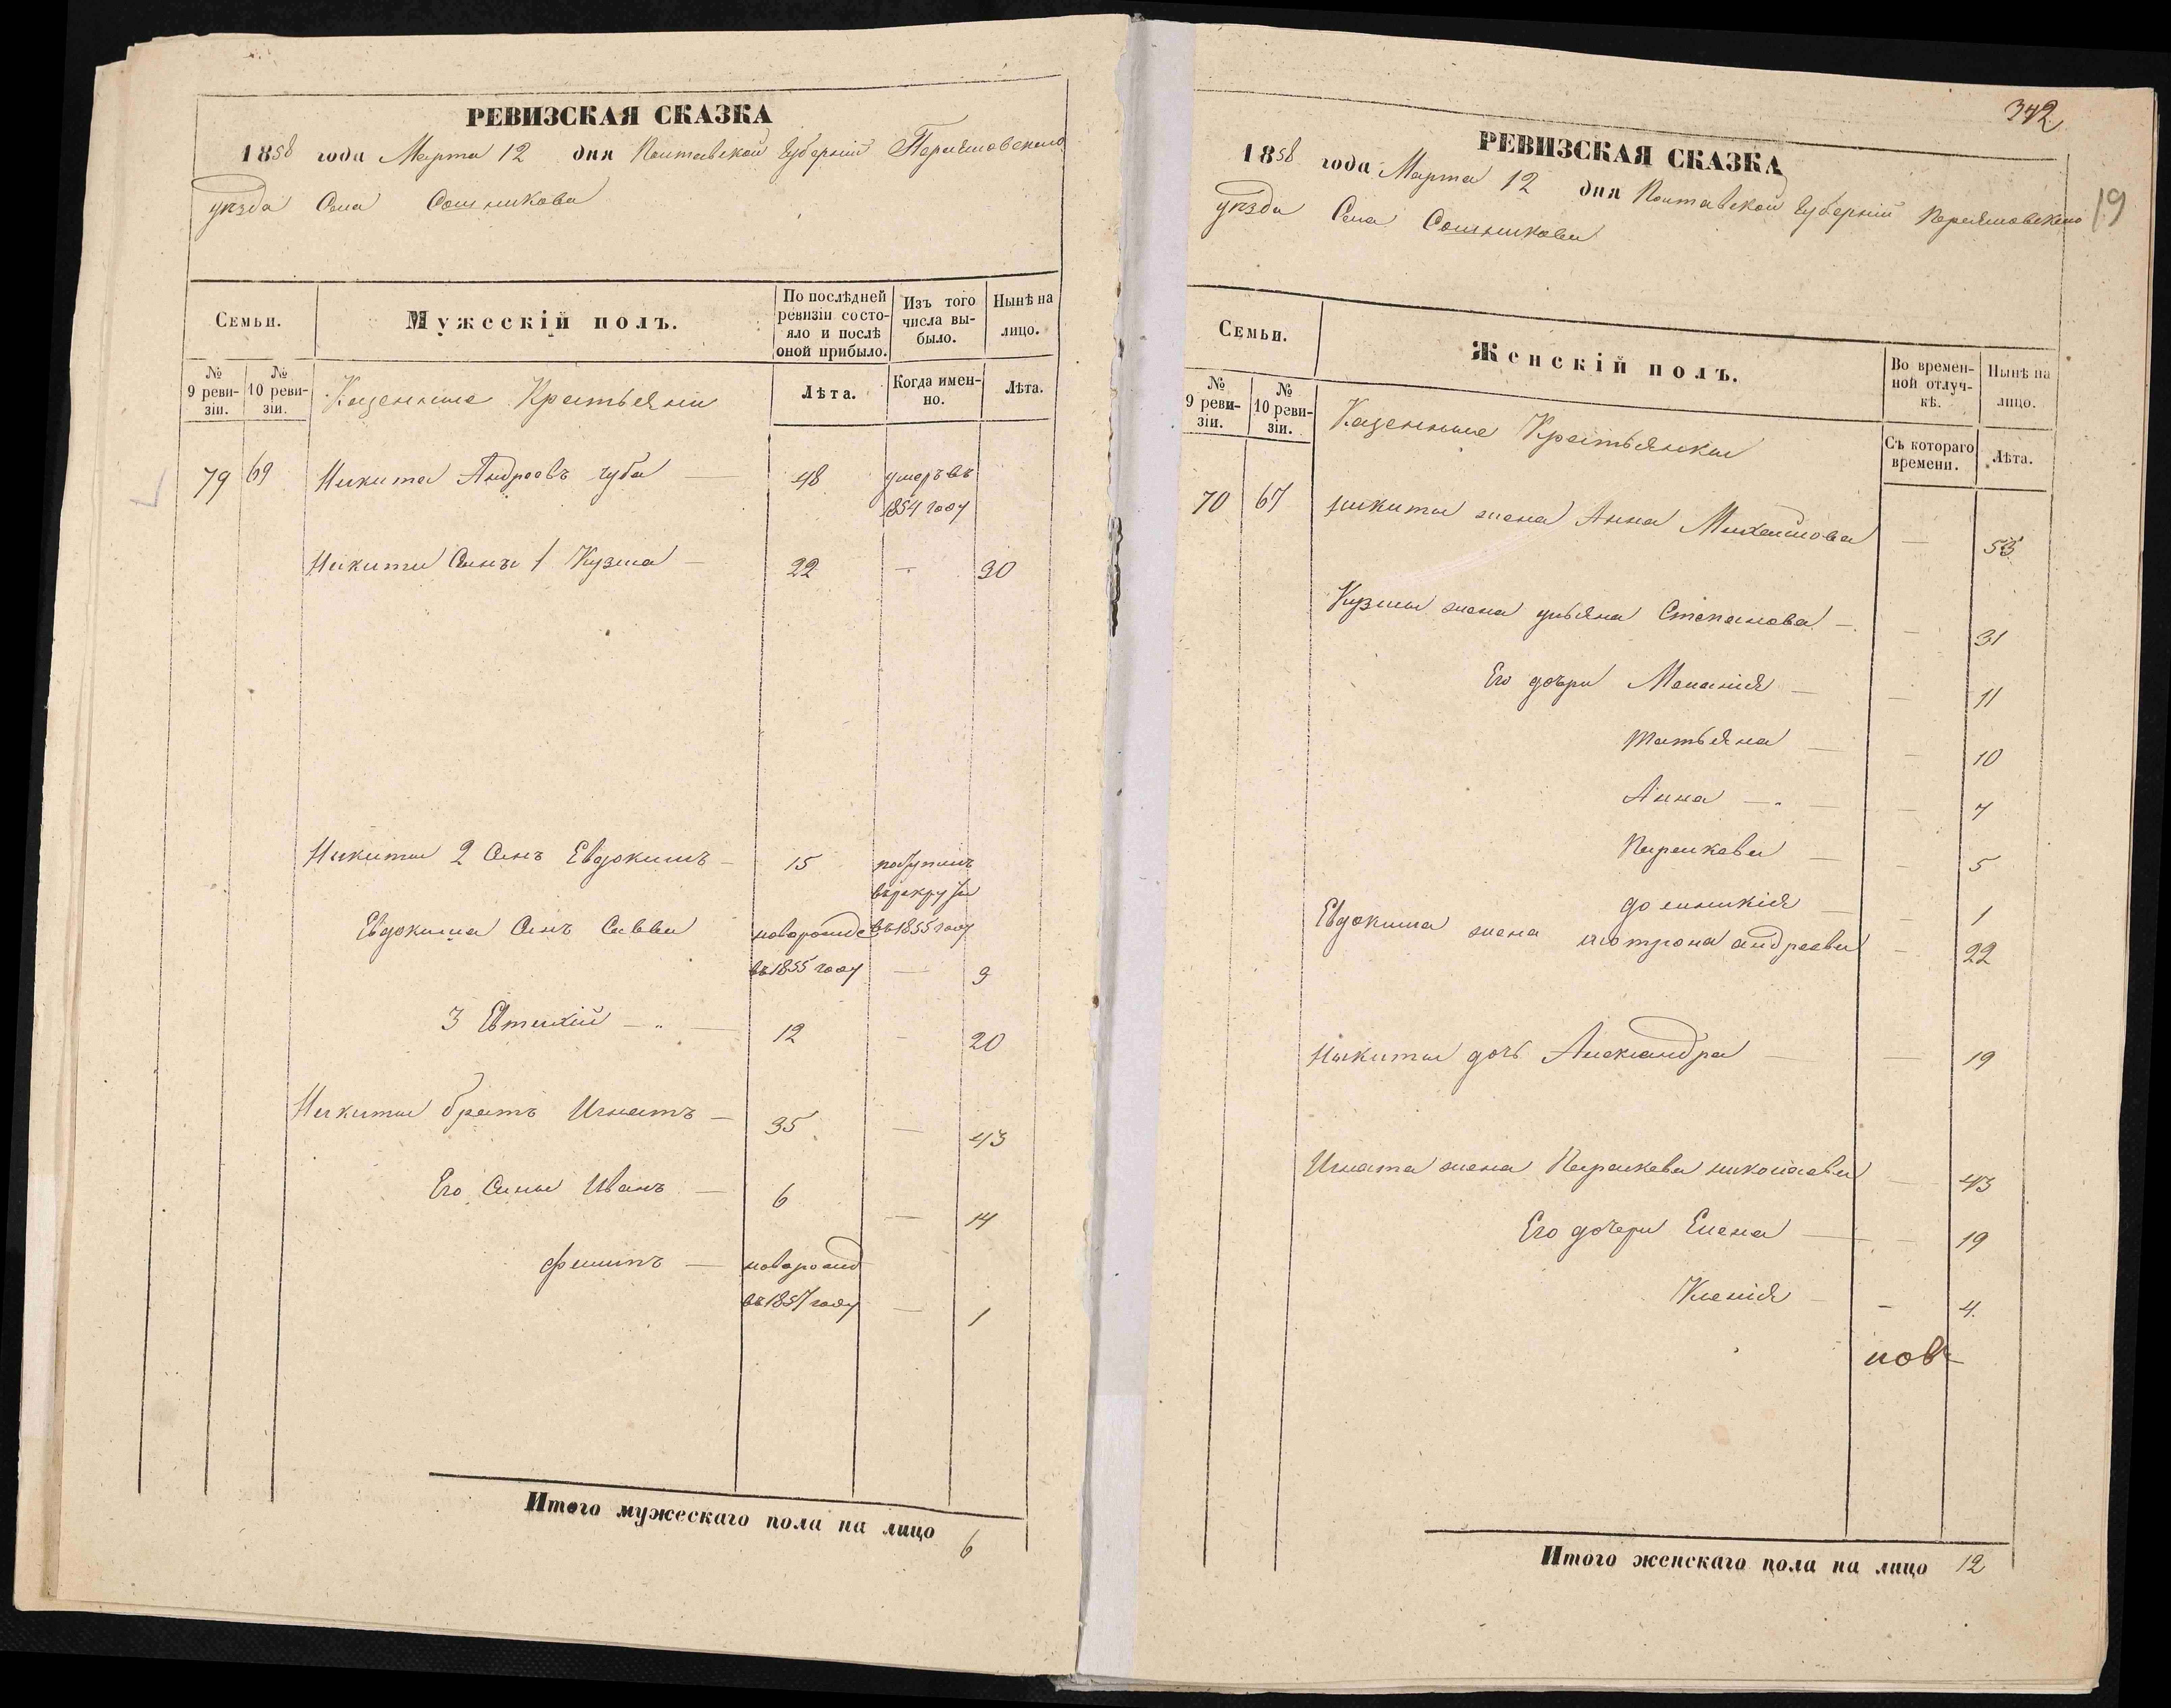 РЕВИЗСКАЯ СКАЗКА
1858 года Марта 12 дня Полтавской Губерніи Переясловского
уезда Села Сошникова
Семьи.
Мужескій полъ.
По послѣдней ревизіи состояло и послѣ оной прибыло.
Изъ того числа выбыло.
Нынѣ на лицо.
№ 9 ревизіи.
№ 10 ревизіи.
Казенные Крестьяни
Лѣта.
Когда именно.
Лѣта.
79 69 Никита Андреевъ Чуба — 48 умеръ въ
1854 году
Никиты Сынъ 1 Кузма — 22 — 30
Никиты 2 Сынъ Евдокимъ — 15 поступилъ
въ рекруты
Евдокима Сынъ Савва новорожде въ 1855 году
въ 1855 году — 3
3 Евтихій — 12 — 20
Никиты братъ Игнатъ — 35 — 43
Его Сыны Иванъ — 6 — 14
Филипъ — новорожд
въ 1857 году — 1
Итого мужескаго пола на лицо 6
342
19
РЕВИЗСКАЯ СКАЗКА
1858 года Марта 12 дня Полтавской Губерніи Переясловского
уезда Села Сошникова
Семьи.
Женскій полъ.
Во временной отлучкѣ.
Нынѣ на лицо.
№ 9 ревизіи.
№ 10 ревизіи.
Казенные Крестьянки
Съ котораго времени.
Лѣта.
70 67 Никиты жена Анна Михайлова — 53
Кузмы жена ульяна Степанова — — 31
Его дочри Меланія — — 11
Татьяна — — 10
Анна — — 7
Параскева — — 5
домникія — — 1
Евдокима жена мотрона андреева — 22
Никиты дочь Александра — — 19
Игната жена Параскева николаева — 43
Его дочери Елена — — 19
Ксенія — — 4
нов
Итого женскаго пола на лицо 12